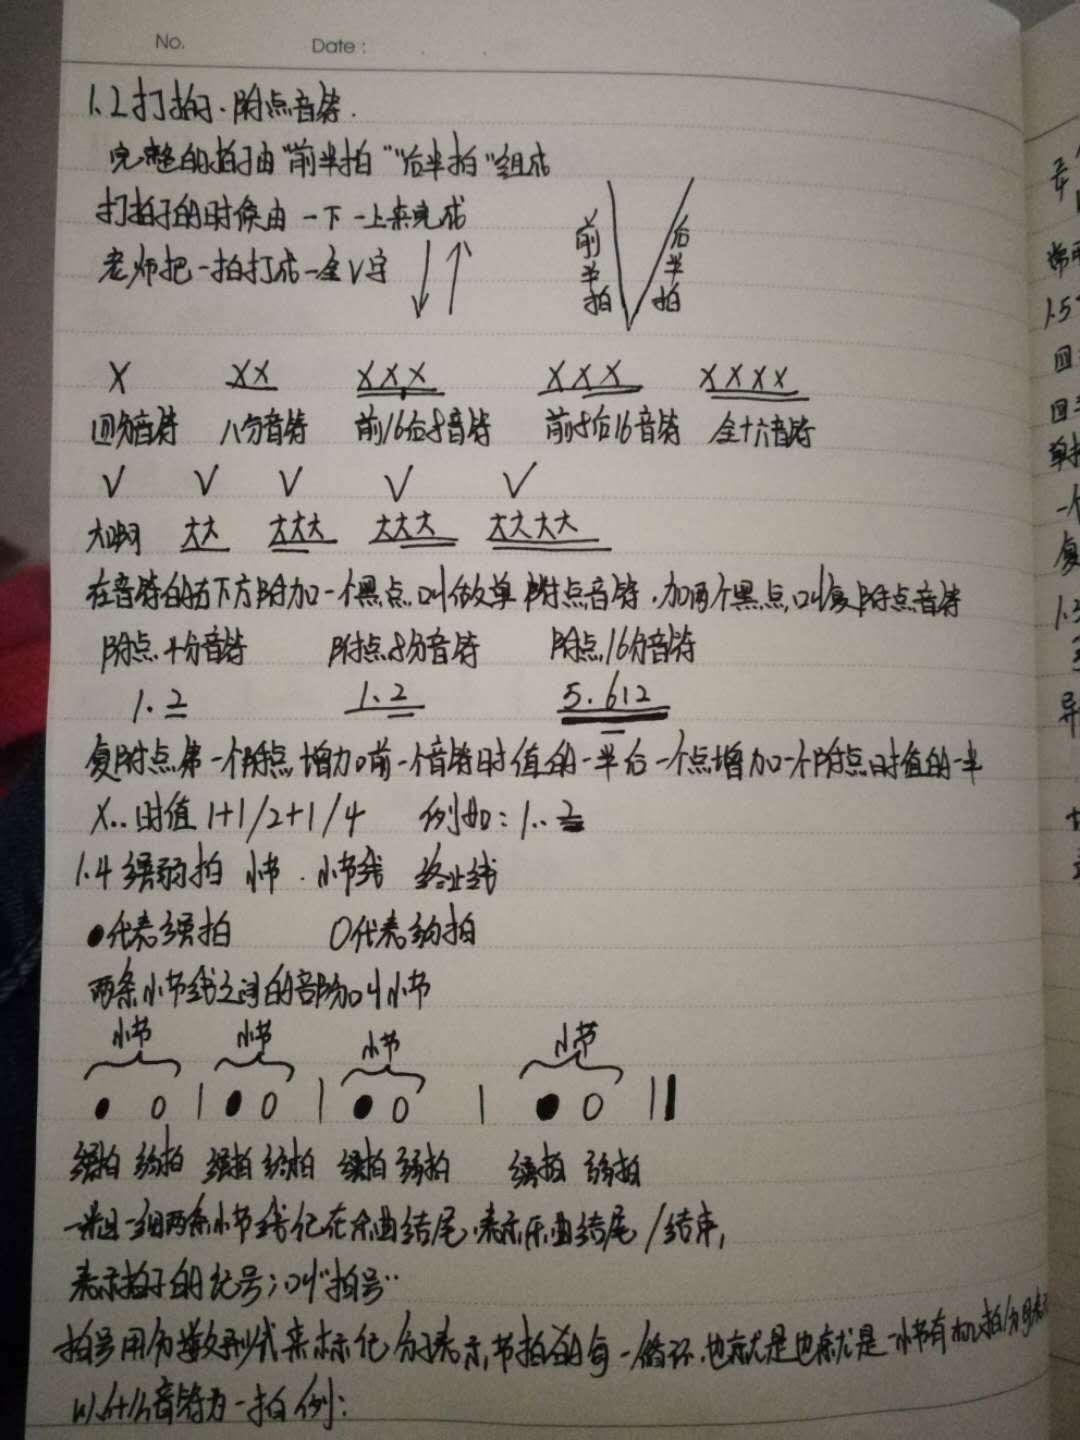 No. Date:
1.2打拍子·附点音符.
完整的拍子由"前半拍""后半拍"组成
打拍子的时候由一下一上来完成
老师把一拍打成一个V字
前半拍 后半拍
X XX XXX XXX XXXX
四分音符 八分音符 前16后8音符 前8后16音符 全十六音符
V V V V V
大啊 大大 大大大 大大大 大大大大
在音符的右下方附加一个黑点,叫做单附点音符,加两个黑点,叫复附点音符
附点4分音符 附点8分音符 附点16分音符
1.2 1.2 5.612
复附点第一个附点增加前一个音符时值的一半后一个点增加一个附点时值的一半
X..时值1+1/2+1/4 例如:1..2
1.4强弱拍 小节.小节线 终止线
●代表强拍 O代表弱拍
两条小节线之间的部分叫小节
小节 小节 小节 小节
● O | ● O | ● O | ● O ||
强拍 弱拍 强拍 弱拍 强拍 弱拍 强拍 弱拍
一组两条小节线记在乐曲结尾,表示乐曲结尾/结束,
表示拍子的记号;叫"拍号"
拍号用分数形式来标记,分子表示,节拍的每一循环.也就是也就是一小节有几拍/分母表示
以几分音符为一拍 例:
1.5